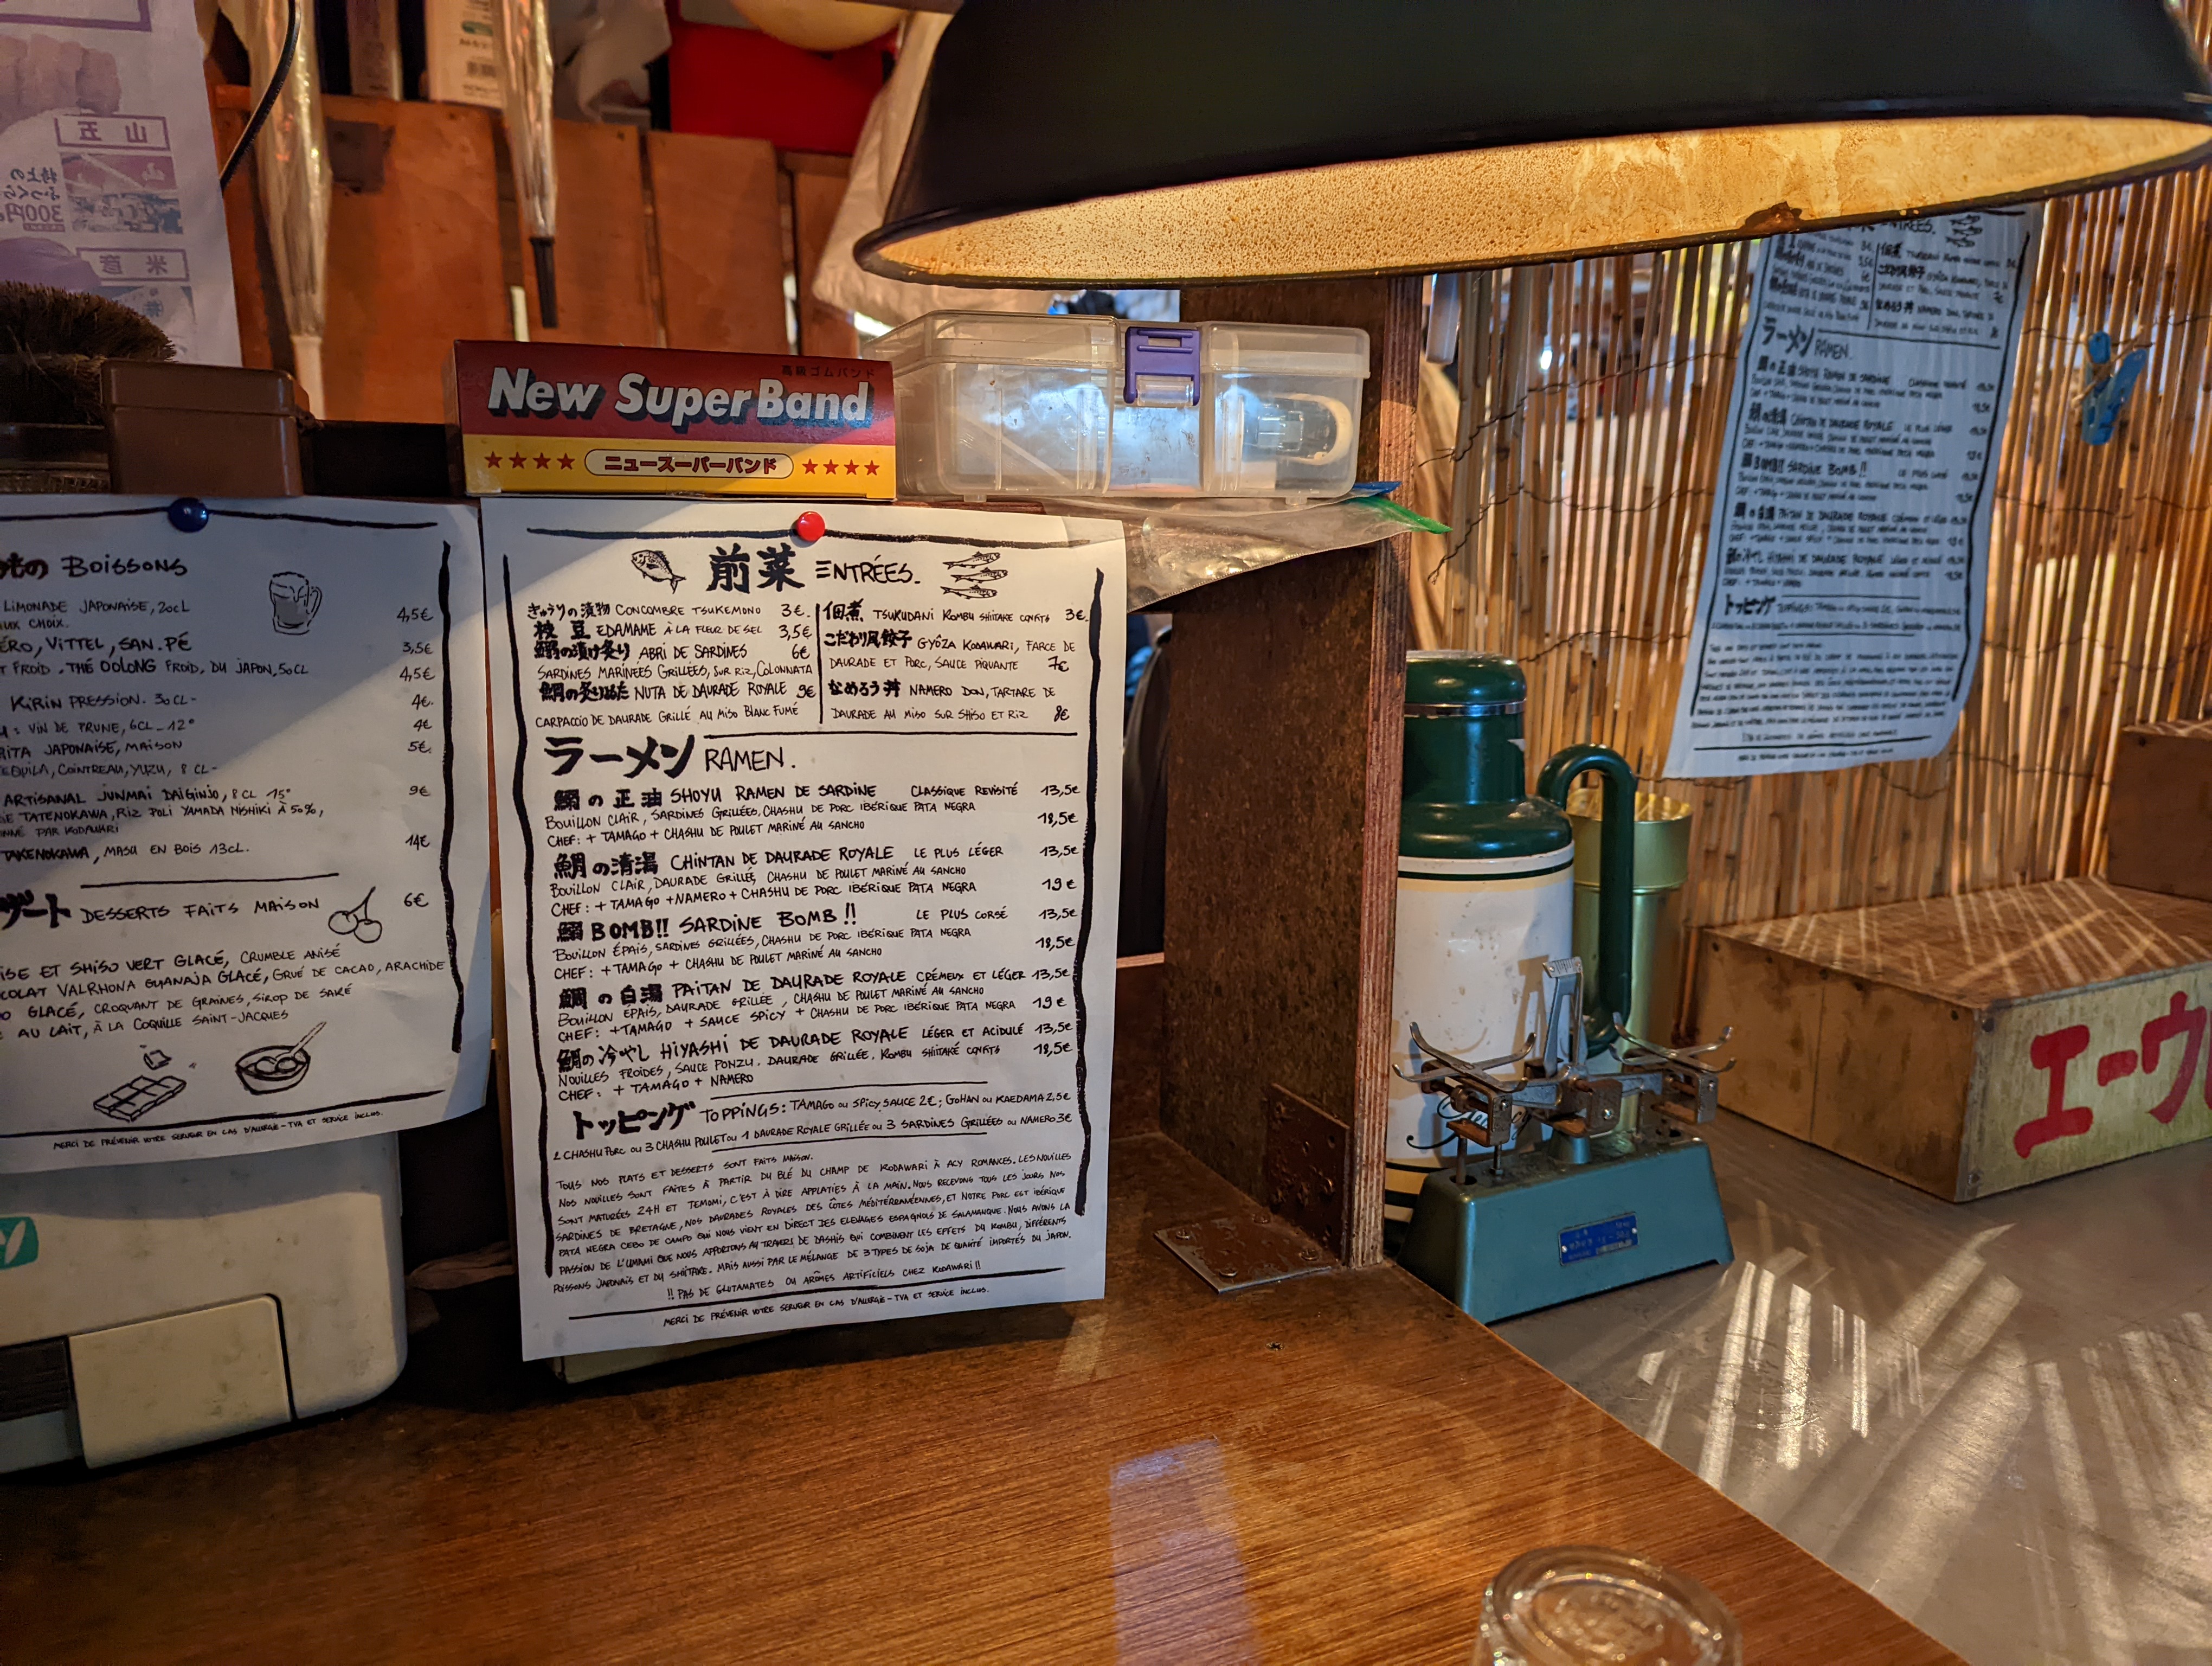 山 五
特上の
ふっくら
300円
米 香
高級ゴムバンド
New Super Band
★★★★ ニュースーパーバンド ★★★★
もの BOISSONS
LIMONADE JAPONAISE, 20CL 4,5€
AUX CHOIX.
VITTEL, SAN. PÉ 3,5€
FROID. THÉ OOLONG FROID, DU JAPON, 50CL 4,5€
KIRIN PRESSION. 30CL- 4€.
: VIN DE PRUNE, 6CL_12° 4€
JAPONAISE, MAISON 5€.
COINTREAU, YUZU, 8 CL-
ARTISANAL JUNMAI DAIGINJO, 8 CL 15° 9€
TATENOKAWA, RIZ POLI YAMADA NISHIKI À 50%,
PAR KODAWARI
TAKENOKAWA, MASU EN BOIS 13CL. 14€
ザート DESSERTS FAITS MAISON 6€
ET SHISO VERT GLACÉ, CRUMBLE ANISÉ
VALRHONA GUANAJA GLACÉ, GRUÉ DE CACAO, ARACHIDE
GLACÉ, CROQUANT DE GRAINES, SIROP DE SAKÉ
AU LAIT, À LA COQUILLE SAINT-JACQUES
MERCI DE PRÉVENIR VOTRE SERVEUR EN CAS D'ALLERGIE - TVA ET SERVICE INCLUS.
前菜 ENTRÉES.
きゅうりの漬物 CONCOMBRE TSUKEMONO 3€.
枝豆 EDAMAME À LA FLEUR DE SEL 3,5€
鰯の漬け炙り ABRI DE SARDINES 6€
SARDINES MARINÉES GRILLÉES, SUR RIZ, COLONNATA
鯛の炙りぬた NUTA DE DAURADE ROYALE 9€
CARPACCIO DE DAURADE GRILLÉ AU MISO BLANC FUMÉ
佃煮 TSUKUDANI KOMBU SHIITAKE CONFITS 3€.
こだわり風餃子 GYÔZA KODAWARI, FARCE DE
DAURADE ET PORC, SAUCE PIQUANTE 7€
なめろう丼 NAMERO DON, TARTARE DE
DAURADE AU MISO SUR SHISO ET RIZ 8€
ラーメン RAMEN.
鰯の正油 SHOYU RAMEN DE SARDINE CLASSIQUE REVISITÉ 13,5€
BOUILLON CLAIR, SARDINES GRILLÉES, CHASHU DE PORC IBÉRIQUE PATA NEGRA
CHEF: + TAMAGO + CHASHU DE POULET MARINÉ AU SANCHO 18,5€
鯛の清湯 CHINTAN DE DAURADE ROYALE LE PLUS LÉGER 13,5€
BOUILLON CLAIR, DAURADE GRILLÉE, CHASHU DE POULET MARINÉ AU SANCHO
CHEF: + TAMAGO + NAMERO + CHASHU DE PORC IBÉRIQUE PATA NEGRA 19€
鰯 BOMB!! SARDINE BOMB!! LE PLUS CORSÉ 13,5€
BOUILLON ÉPAIS, SARDINES GRILLÉES, CHASHU DE PORC IBÉRIQUE PATA NEGRA
CHEF: + TAMAGO + CHASHU DE POULET MARINÉ AU SANCHO 18,5€
鯛の白湯 PAITAN DE DAURADE ROYALE CRÉMEUX ET LÉGER 13,5€
BOUILLON ÉPAIS, DAURADE GRILLÉE, CHASHU DE POULET MARINÉ AU SANCHO
CHEF: + TAMAGO + SAUCE SPICY + CHASHU DE PORC IBÉRIQUE PATA NEGRA 19€
鯛の冷やし HIYASHI DE DAURADE ROYALE LÉGER ET ACIDULÉ 13,5€
NOUILLES FROIDES, SAUCE PONZU. DAURADE GRILLÉE. KOMBU SHIITAKÉ CONFITS 18,5€
CHEF: + TAMAGO + NAMERO
トッピング TOPPINGS: TAMAGO OU SPICY SAUCE 2€; GOHAN OU KAEDAMA 2,5€
2 CHASHU PORC OU 3 CHASHU POULET OU 1 DAURADE ROYALE GRILLÉE OU 3 SARDINES GRILLÉES OU NAMERO 3€
TOUS NOS PLATS ET DESSERTS SONT FAITS MAISON.
NOS NOUILLES SONT FAITES À PARTIR DU BLÉ DU CHAMP DE KODAWARI À ACY ROMANCES. LES NOUILLES
SONT MATURÉES 24H ET TEMOMI, C'EST À DIRE APPLATIES À LA MAIN. NOUS RECEVONS TOUS LES JOURS, NOS
SARDINES DE BRETAGNE, NOS DAURADES ROYALES DES CÔTES MÉDITERRANÉENNES, ET NOTRE PORC EST IBÉRIQUE
PATA NEGRA CEBO DE CAMPO QUI NOUS VIENT EN DIRECT DES ELEVAGES ESPAGNOLS DE SALAMANQUE. NOUS AVONS LA
PASSION DE L'UMAMI QUE NOUS APPORTONS AU TRAVERS DE DASHIS QUI COMBINENT LES EFFETS DU KOMBU, DIFFÉRENTS
POISSONS JAPONAIS ET DU SHIITAKE. MAIS AUSSI PAR LE MÉLANGE DE 3 TYPES DE SOJA DE QUALITÉ IMPORTÉS DU JAPON.
!! PAS DE GLUTAMATES OU ARÔMES ARTIFICIELS CHEZ KODAWARI!!
MERCI DE PRÉVENIR VOTRE SERVEUR EN CAS D'ALLERGIE - TVA ET SERVICE INCLUS.
ENTRÉES.
佃煮
こだわり風餃子 GYÔZA KODAWARI, FARCE DE
なめろう丼 NAMERO DON, TARTARE DE
ラーメン RAMEN.
鰯の正油 SHOYU RAMEN DE SARDINE
鯛の清湯 CHINTAN DE DAURADE ROYALE LE PLUS LÉGER
鰯 BOMB!! SARDINE BOMB!!
鯛の白湯 PAITAN DE DAURADE ROYALE
鯛の冷やし HIYASHI DE DAURADE ROYALE
トッピング
エーウ